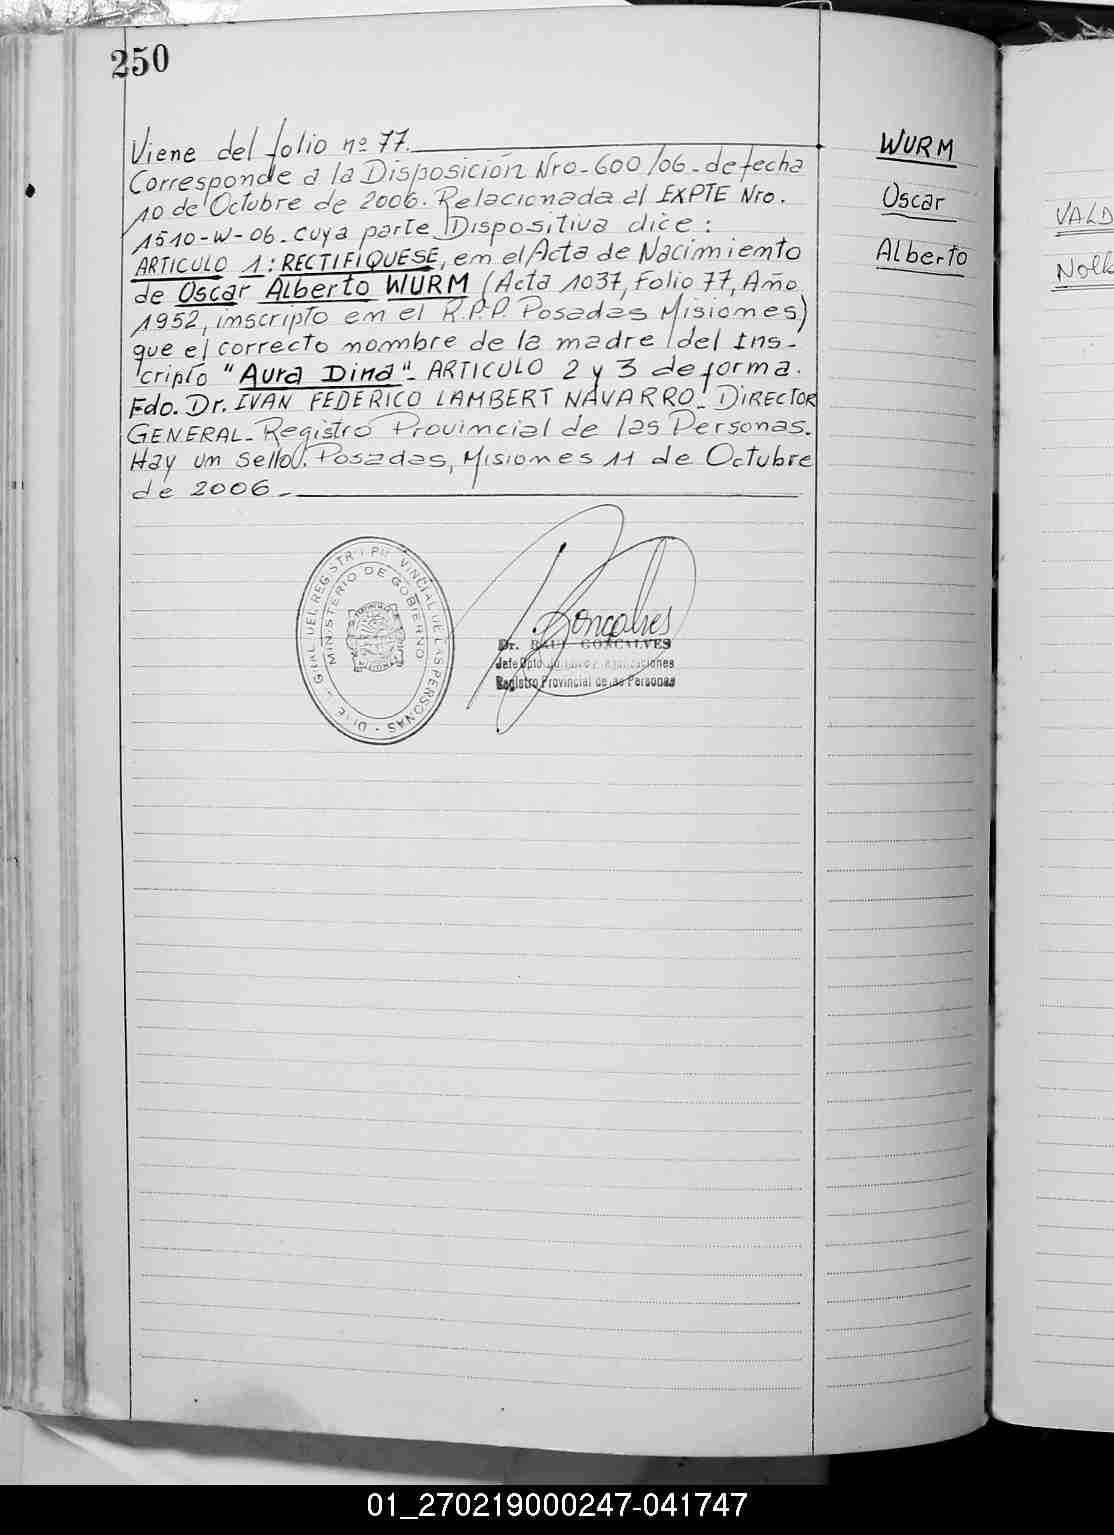 250
Viene del folio nº 77.
Corresponde a la Disposición Nro-600/06-de fecha
10 de Octubre de 2006. Relacionada al EXPTE Nro.
1510-W-06. cuya parte Dispositiva dice:
ARTICULO 1: RECTIFIQUESE, en el Acta de Nacimiento
de Oscar Alberto WURM (Acta 1037, Folio 77, Año
1952, inscripto en el R.P.P. Posadas Misiones)
que el correcto nombre de la madre del Ins-
cripto "Aura Dina"- ARTICULO 2 y 3 de forma.
Fdo. Dr. IVAN FEDERICO LAMBERT NAVARRO- DIRECTOR
GENERAL- Registro Provincial de las Personas.
Hay un sello. Posadas, Misiones 11 de Octubre
de 2006-
WURM
Oscar
Alberto
GRAL DEL REGISTRO PROVINCIAL DE LAS PERSONAS
MINISTERIO DE GOBIERNO
Goncalves
Dr. RAUL GONCALVES
Jefe Dpto
Registro Provincial de las Personas
VALD
01_270219000247-041747